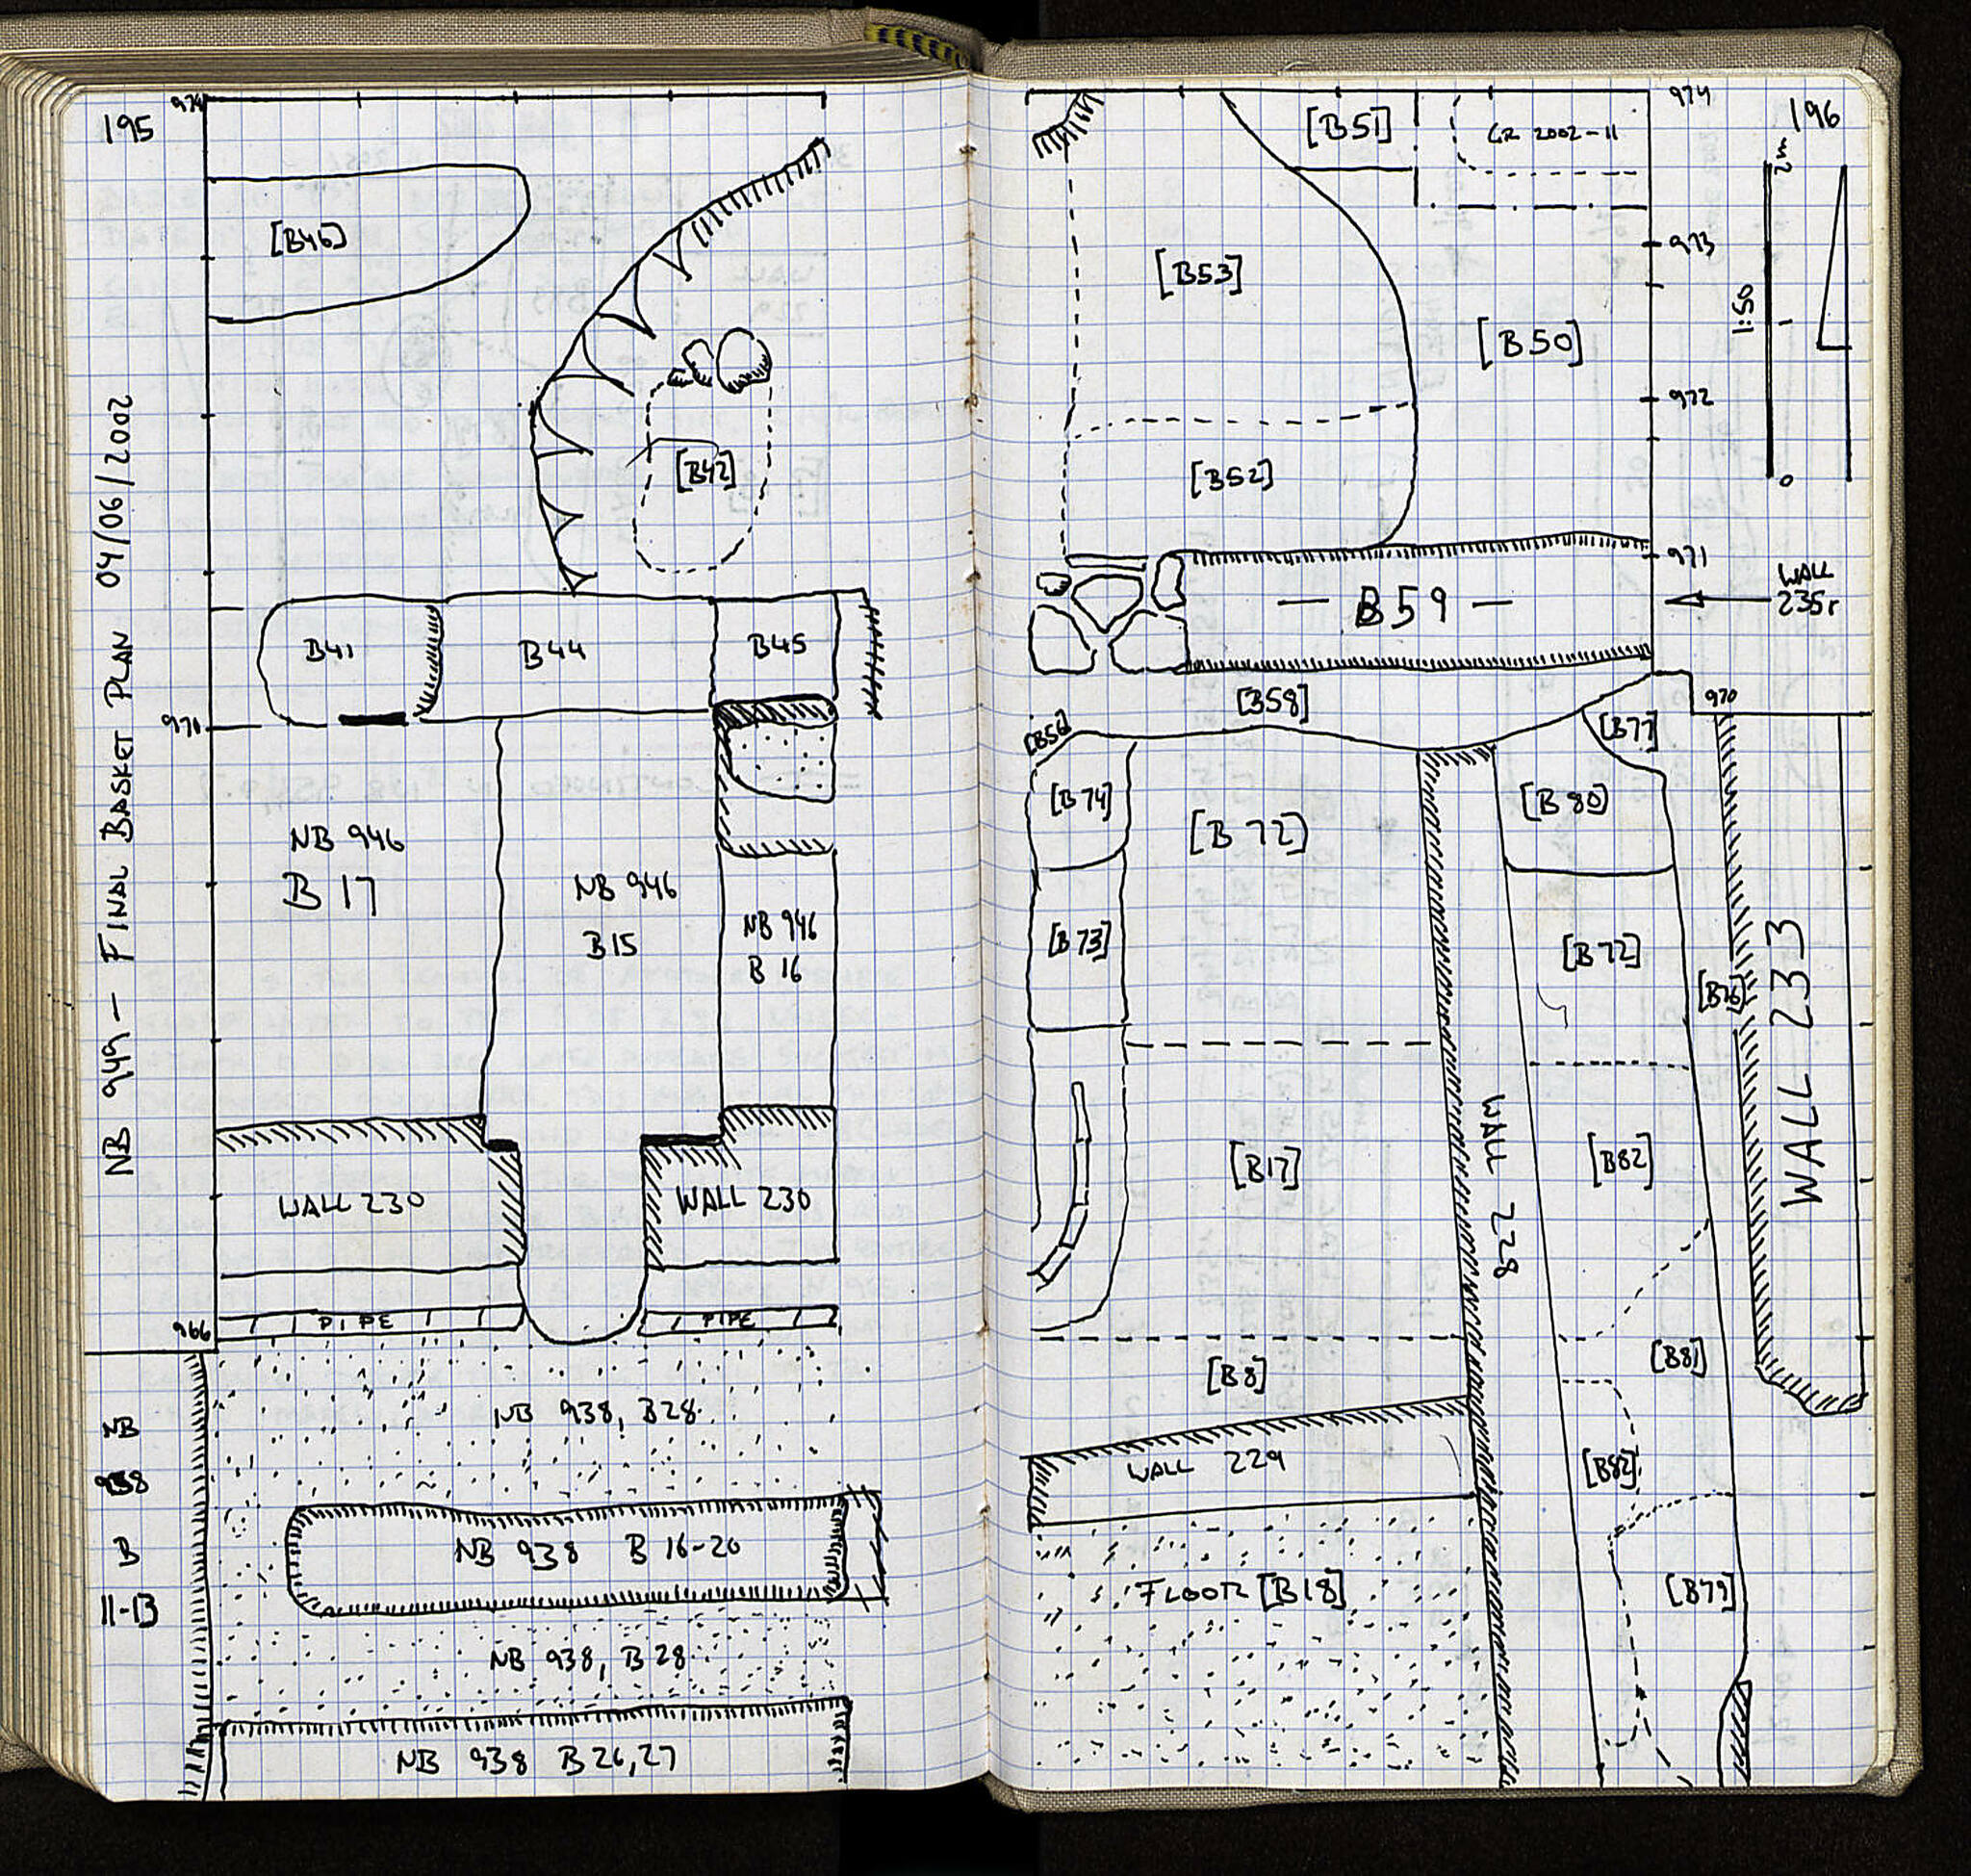 195
974
[B46]
NB 949 - FINAL BASKET PLAN 04/06/2002
[B42]
B41
B44
B45
970
NB 946
B 17
NB 946
B15
NB 946
B 16
WALL 230
WALL 230
966
PIPE
PIPE
NB
938
B
11-13
NB 938, B28
NB 938 B 16-20
NB 938, B28
NB 938 B26,27
196
974
[B51]
GR 2002-11
2m
1:50
0
973
[B53]
[B50]
972
[B52]
971
WALL
235r
- B59 -
[B58]
970
[B56]
[B77]
[B74]
[B 72]
[B 80]
[B 73]
[B 72]
[B76]
WALL 233
WALL 228
[B17]
[B82]
[B8]
[B81]
WALL 229
[B82]
FLOOR [B18]
[B79]